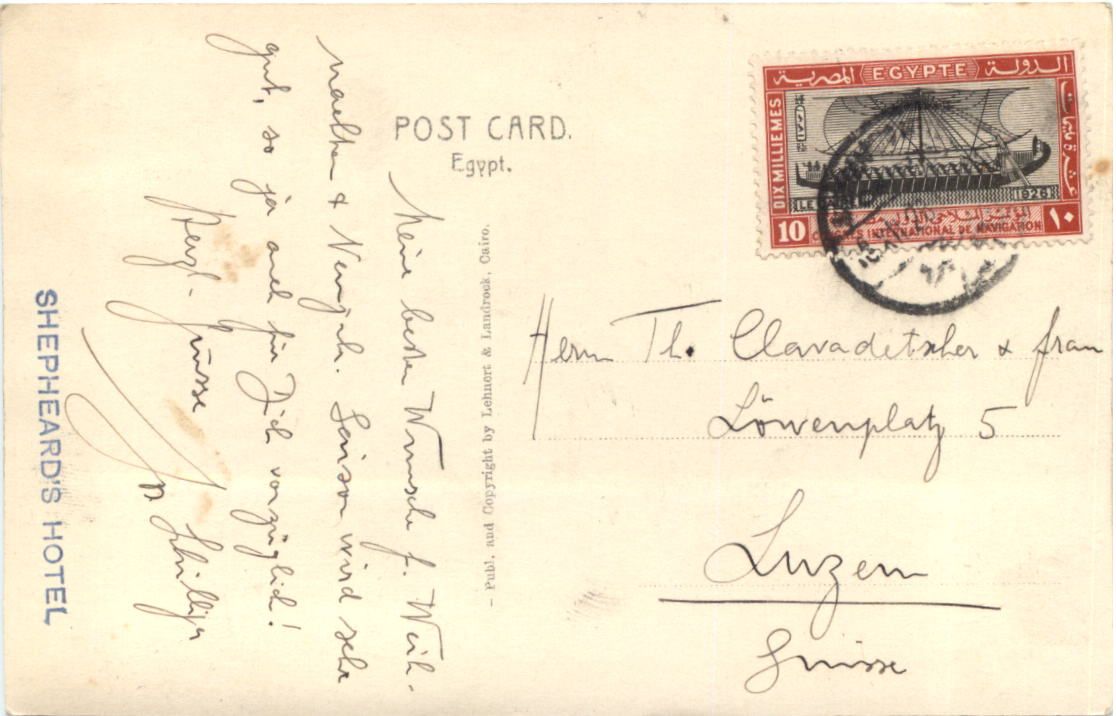 POST CARD.
Egypt.
Meine besten Wünsche f. Weih-
nachten & Neujahr. Saison wird sehr
gut, so ja auch für Dich vorzüglich!
Herzl. Grüsse
SHEPHEARD'S HOTEL
– Publ. and Copyright by Lehnert & Landrock, Cairo.
الدولة المصرية
EGYPTE
DIX MILLIEMES
عشرة مليمات
1926
10
١٠
CONGRES INTERNATIONAL DE NAVIGATION
Herrn Th. Clavadetscher & Frau
Löwenplatz 5
Luzern
Suisse